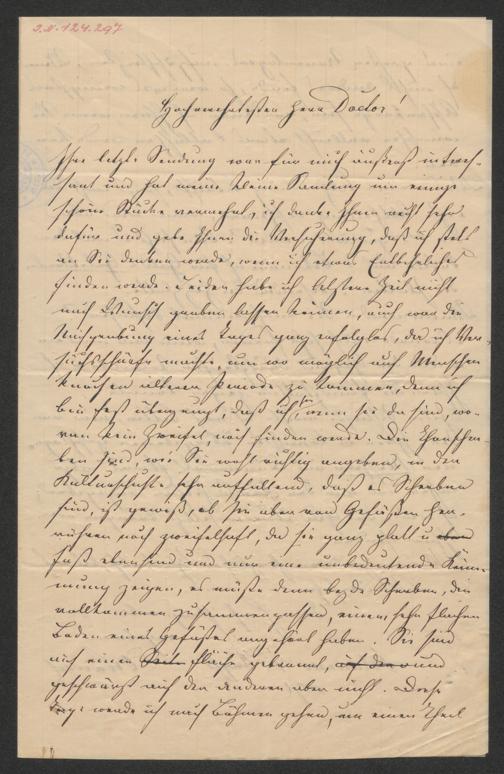 J.N. 124.297
Hochverehrtester Herr Doctor!
Ihre letzte Sendung war für mich äußerst interes-
sant und hat meine kleine Samlung um einige
schöne Stücke vermehrt, ich danke Ihnen recht sehr
dafür und gebe Ihnen die Versicherung, daß ich stets
an Sie denken werde, wenn ich etwas Entbehrliches
finden werde. Leider habe ich letztere Zeit nicht
nach Wunsch graben lassen können, auch war die
Ausgrabung eines Tages ganz erfolglos, da ich Ver-
suchsschürfe machte, um wo möglich auf Menschen
Knochen älterer Periode zu kommen, denn ich
bin fest überzeugt, daß ich, wenn sie da sind, wo-
ran kein Zweifel, noch finden werde. Die Thonscher-
ben sind, wie Sie wohl richtig angeben, in den
Kulturschichte sehr auffallend, daß es Scherben
sind, ist gewiß, ob sie aber von Gefäßen her-
rühren noch zweifelhaft, da sie ganz platt u eben
fast ebend sind und nur eine unbedeutende Krüm-
mung zeigen, es müßte denn beyde Scherben, die
vollkommen zusammenpassen, einem sehr flachen
Boden eines Gefäßes angehört haben. Sie sind
auf einer Seite Fläche gebrannt, auf der und
geschwärzt auf der anderen aber nicht. Diese
Tage werde ich nach Böhmen gehen, um einen Theil